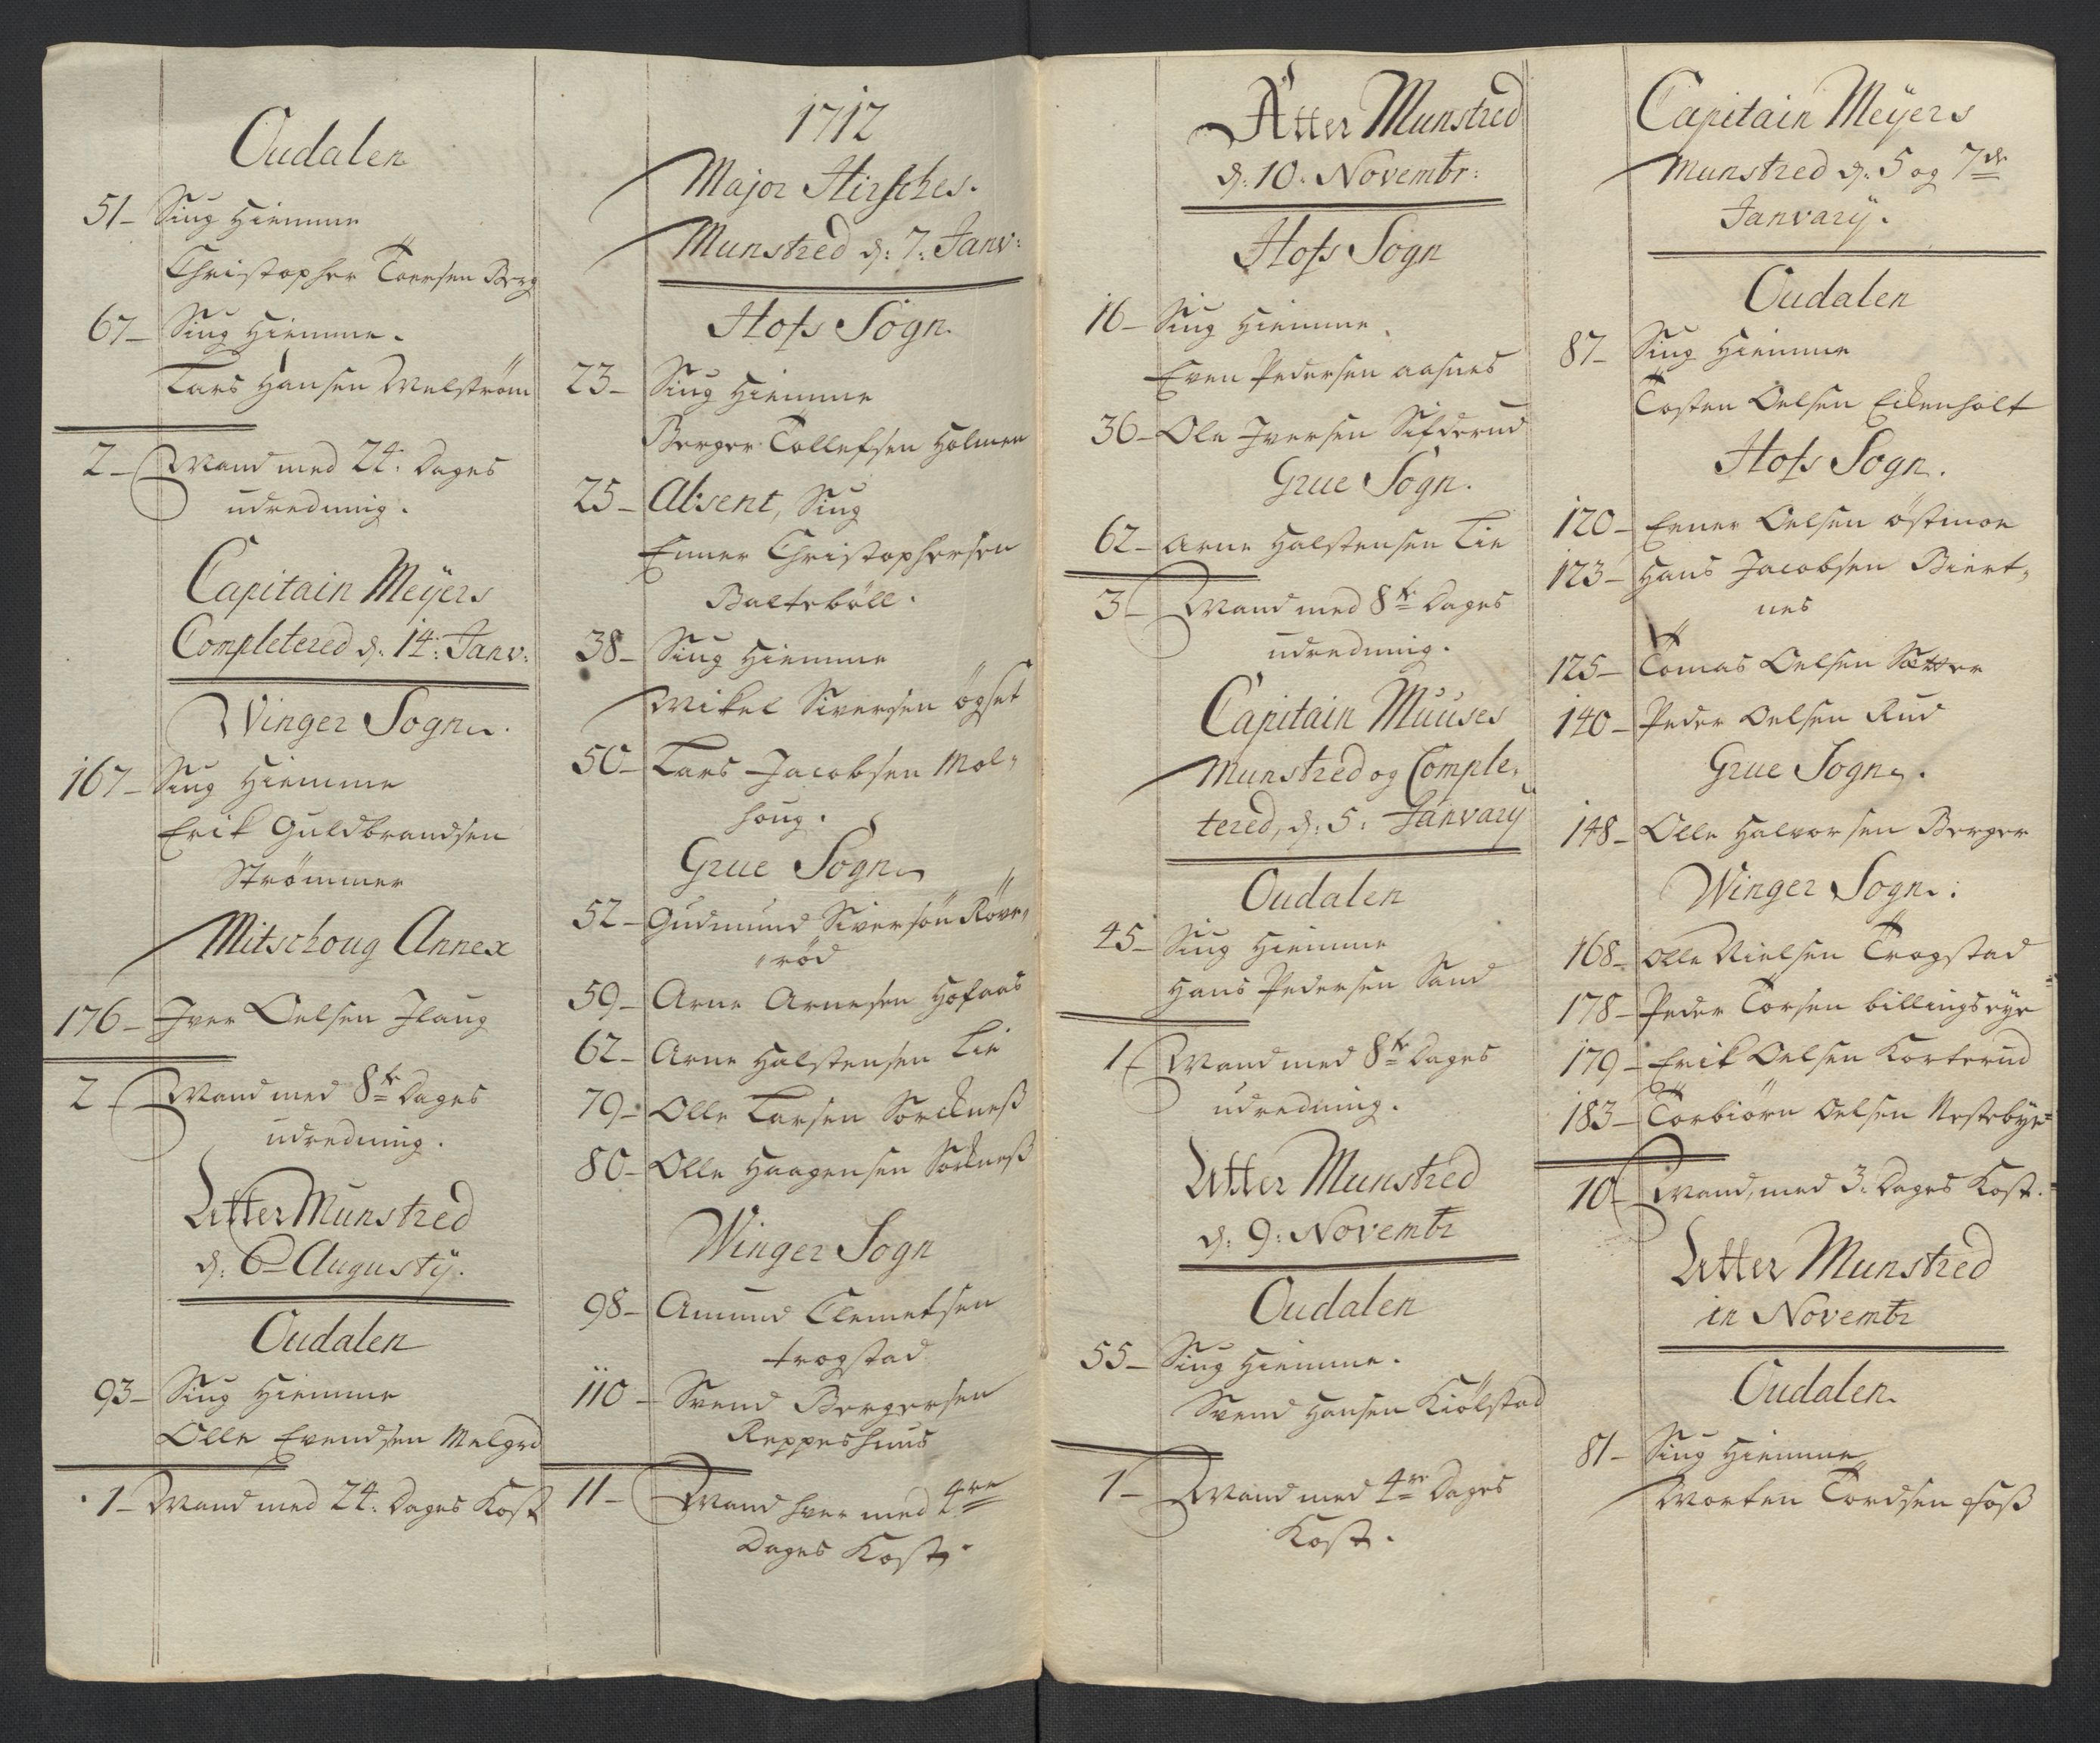 Oudalen
51 - Siug Hiemme
Christopher Toersen Berg
67 - Siug Hiemme.
Lars Hansen Melström
2 - Mand med 24. Dages
udredning.
Capitain Meÿers
Completered d. 14: Janv:
Winger Sogn.
167 - Siug Hiemme
Erik Guldbrandsen
Strömmer
Mitschoug Annex
176 - Iver Oelsen Ilaug
2 - Mand med 8te Dages
udredning.
Atter Munstred
d. 6 Augustÿ.
Oudalen
93 - Siug Hiemme
Olle Evendsen Melgrd
1 - Mand med 24. Dages Kost
1712
Major Hirsches.
Munstred d: 7: Janv:
Hofs Sogn.
23 - Siug Hiemme
Berger Tollefsen Holmen
25 - Absent, Siug
Enner Christophersen
Baltebøll.
38 - Siug Hiemme
Mikel Siversen ögset
50 - Lars Jacobsen Mol-
houg.
Grue Sogn
52 - Gudmund Siversön Röve-
röd
59 - Arne Arnesen Hofaas
62 - Arne Halstensen Lie
79 - Olle Larsen Sorckneß
80 - Olle Haagensen Sorkneß
Winger Sogn
98 - Amund Clemetsen
trogstad
110 - Svend Bergersen
Reppeshuus
11 - Mand hver med 4re
Dages Kost.
Atter Munstred
d: 10. Novembr:
Hofs Sogn
16 - Siug Hiemme.
Even Pedersen aasnes
36 - Ole Iversen Sifderud
Grue Sogn.
62 - Arne Halstensen Lie
3 - Mand med 8te Dages
udredning.
Capitain Muuses
Munstred og Comple-
tered, d: 5: Januarÿ
Oudalen
45 - Siug Hiemme
Hans Pedersen Sand
1 - Mand med 8te Dages
udredning.
Atter Munstred
d: 9: Novembr
Oudalen
55 - Siug Hiemme.
Svend Hansen Kiölstad
1 - Mand med 4re Dages
Kost.
Capitain Meÿers
Munstred d: 5 og 7de
Janvarÿ.
Oudalen
87 - Siug Hiemme
Tosten Oelsen Eckenholt
Hofs Sogn.
120 - Enner Oelsen östmoe
123 - Hans Jacobsen Biert-
nes
125 - Tomas Oelsen Sætter
140 - Peder Oelsen Rud
Grue Sogn.
148 - Olle Halvorsen Berger
Winger Sogn:
168 - Olle Nielsen Trogstad
178 - Peder Torsen billingseÿe
179 - Erik Oelsen Korterud
183 - Torbiörn Oelsen Nestebÿe
10 - Mand, med 3. Dages Kost.
Atter Munstred
in Novembr
Oudalen.
81 - Siug Hiemme
Morten Tordsen Foß